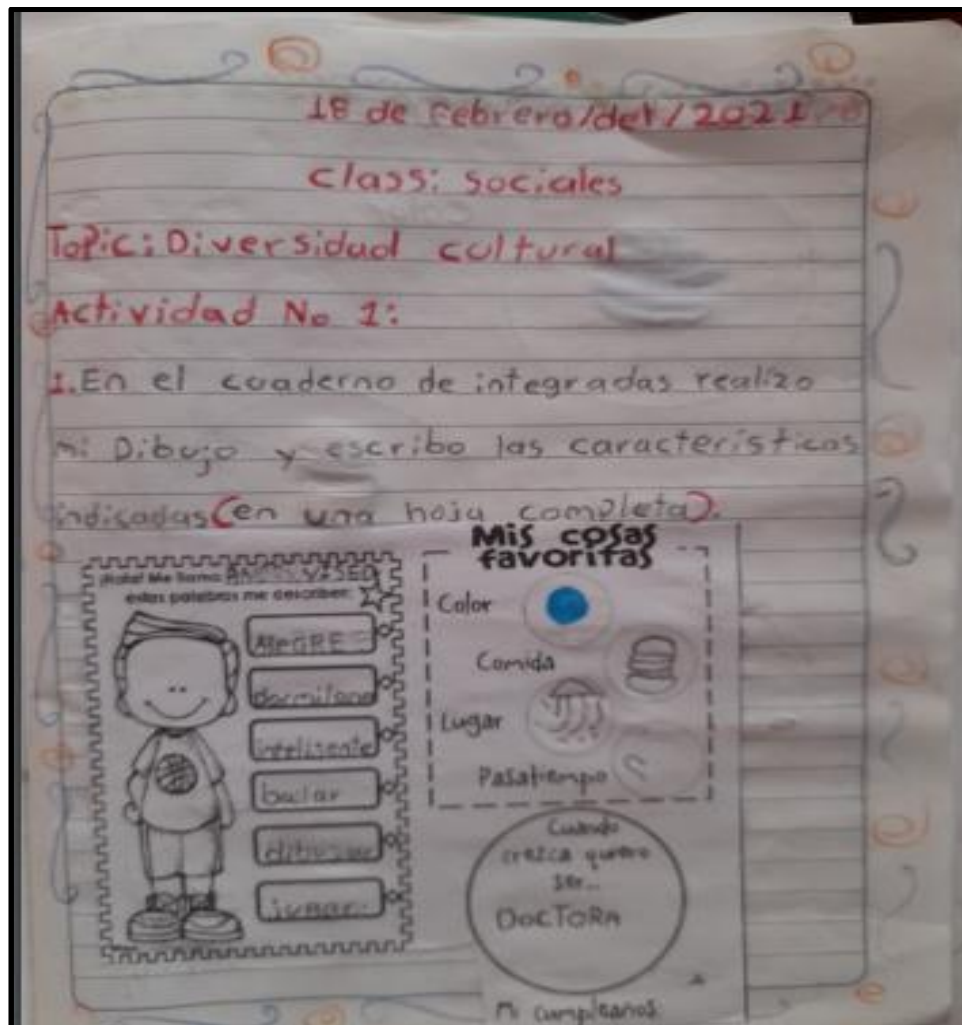 18 de Febrero/del/2021
Class: Sociales
Topic: Diversidad cultural
Actividad No 1:
1. En el cuaderno de integradas realizo
mi Dibujo y escribo las características
indicadas (en una hoja completa).
¡Hola! Me llamo
estas palabras me describen:
AleGRE
dormilona
inteligente
bailar
dibujar
jugar
Mis cosas
favoritas
Color
Comida
Lugar
Pasatiempo
Cuando
crezca quiero
ser...
DOCTORA
Mi cumpleaños: